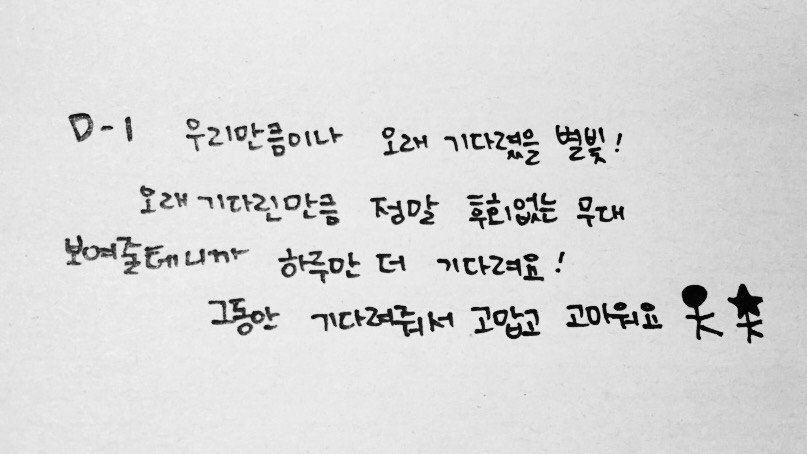 D-1 우리만큼이나 오래 기다렸을 별빛!
오래 기다린만큼 정말 후회없는 무대
보여줄테니까 하루만 더 기다려요!
그동안 기다려줘서 고맙고 고마워요